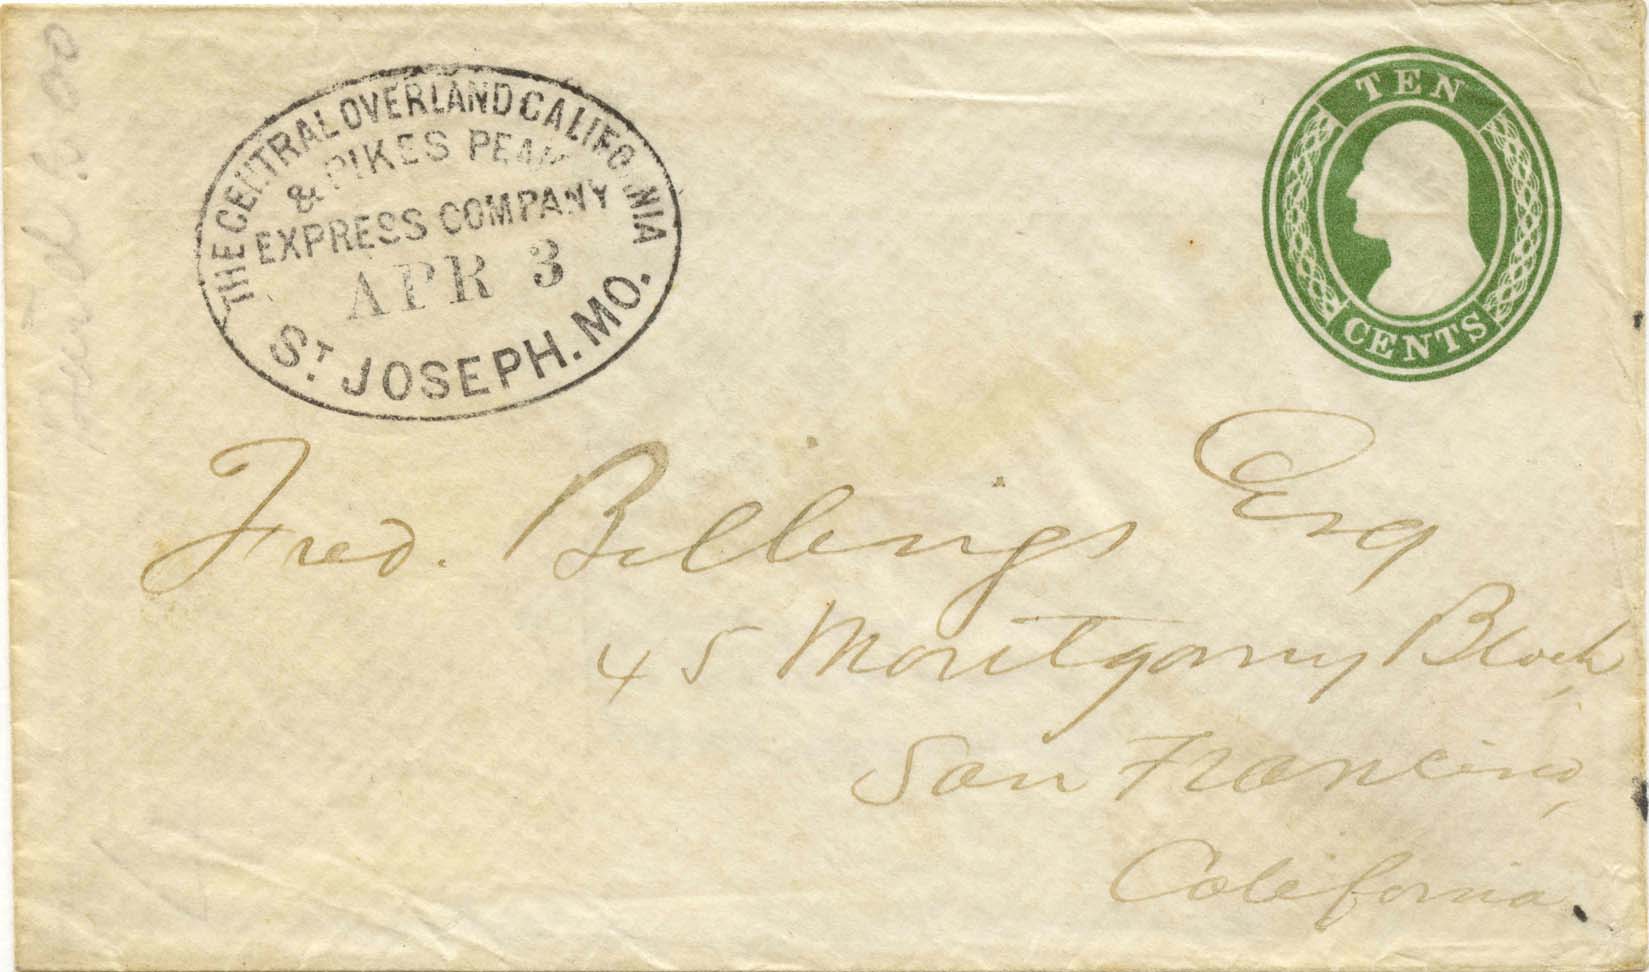 THE CENTRAL OVERLAND CALIFORNIA
& PIKES PEAK
EXPRESS COMPANY
APR 3
ST. JOSEPH. MO.
TEN
CENTS
Fred. Billings Esq
45 Montgomry Block,
San Francisco,
California.